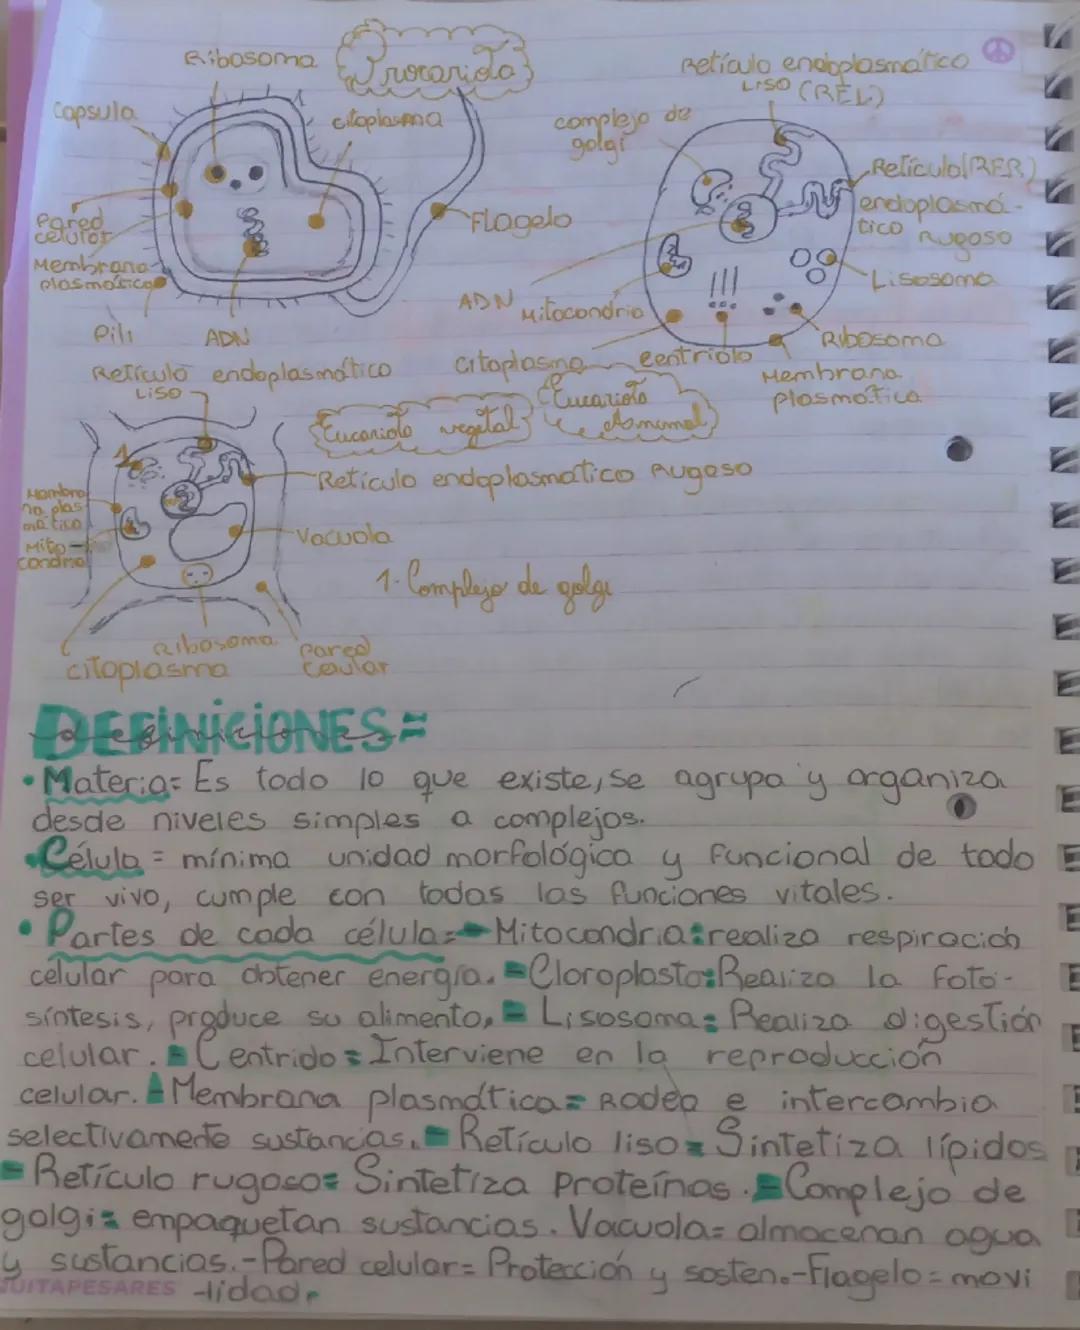 Ribosoma
Procariota
Capsula
citoplasma
Pared
celular
Membrana
plasmática
Pili
ADN
Flagelo
Retículo endoplasmático
Liso (REL)
complejo de
golgi
Retículo (RER)
endoplasmá-
tico Rugoso
Lisosoma
ADN
Mitocondria
Citoplasma
centriolo
Ribosoma
Membrana
plasmática
Eucariota
Animal
Retículo endoplasmático
Liso
Eucariota vegetal
Retículo endoplasmático Rugoso
1
Membra
na plas
mática
Mito-
condria
Vacuola
1- Complejo de golgi
Ribosoma
Pared
Celular
citoplasma
DEFINICIONES=
• Materia= Es todo lo que existe, se agrupa y organiza
desde niveles simples a complejos.
• Célula = mínima unidad morfológica y funcional de todo
ser vivo, cumple con todas las funciones vitales.
• Partes de cada célula=- Mitocondria: realiza respiración
celular para obtener energía. - Cloroplasto: Realiza la foto-
síntesis, produce su alimento. - Lisosoma: Realiza digestión
celular. - Centrido = Interviene en la reproducción
celular. - Membrana plasmática= Rodea e intercambia
selectivamente sustancias. - Retículo liso= Sintetiza lípidos
- Retículo rugoso= Sintetiza Proteínas. - Complejo de
golgi= empaquetan sustancias. Vacuola= almacenan agua
y sustancias. - Pared celular= Protección y sosten. - Flagelo= movi
-lidad.
JUITAPESARES